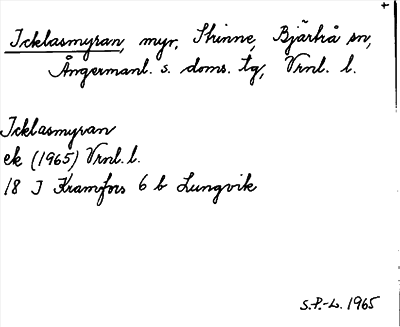 +
Icklasmyran, myr, Skinne, Bjärtrå sn,
Ångermanl. s. doms. tg, Vrnl. l.
Icklasmyran
ek (1965) Vrnl. l.
18 I Kramfors 6 b Lungvik
S.P.-L. 1965